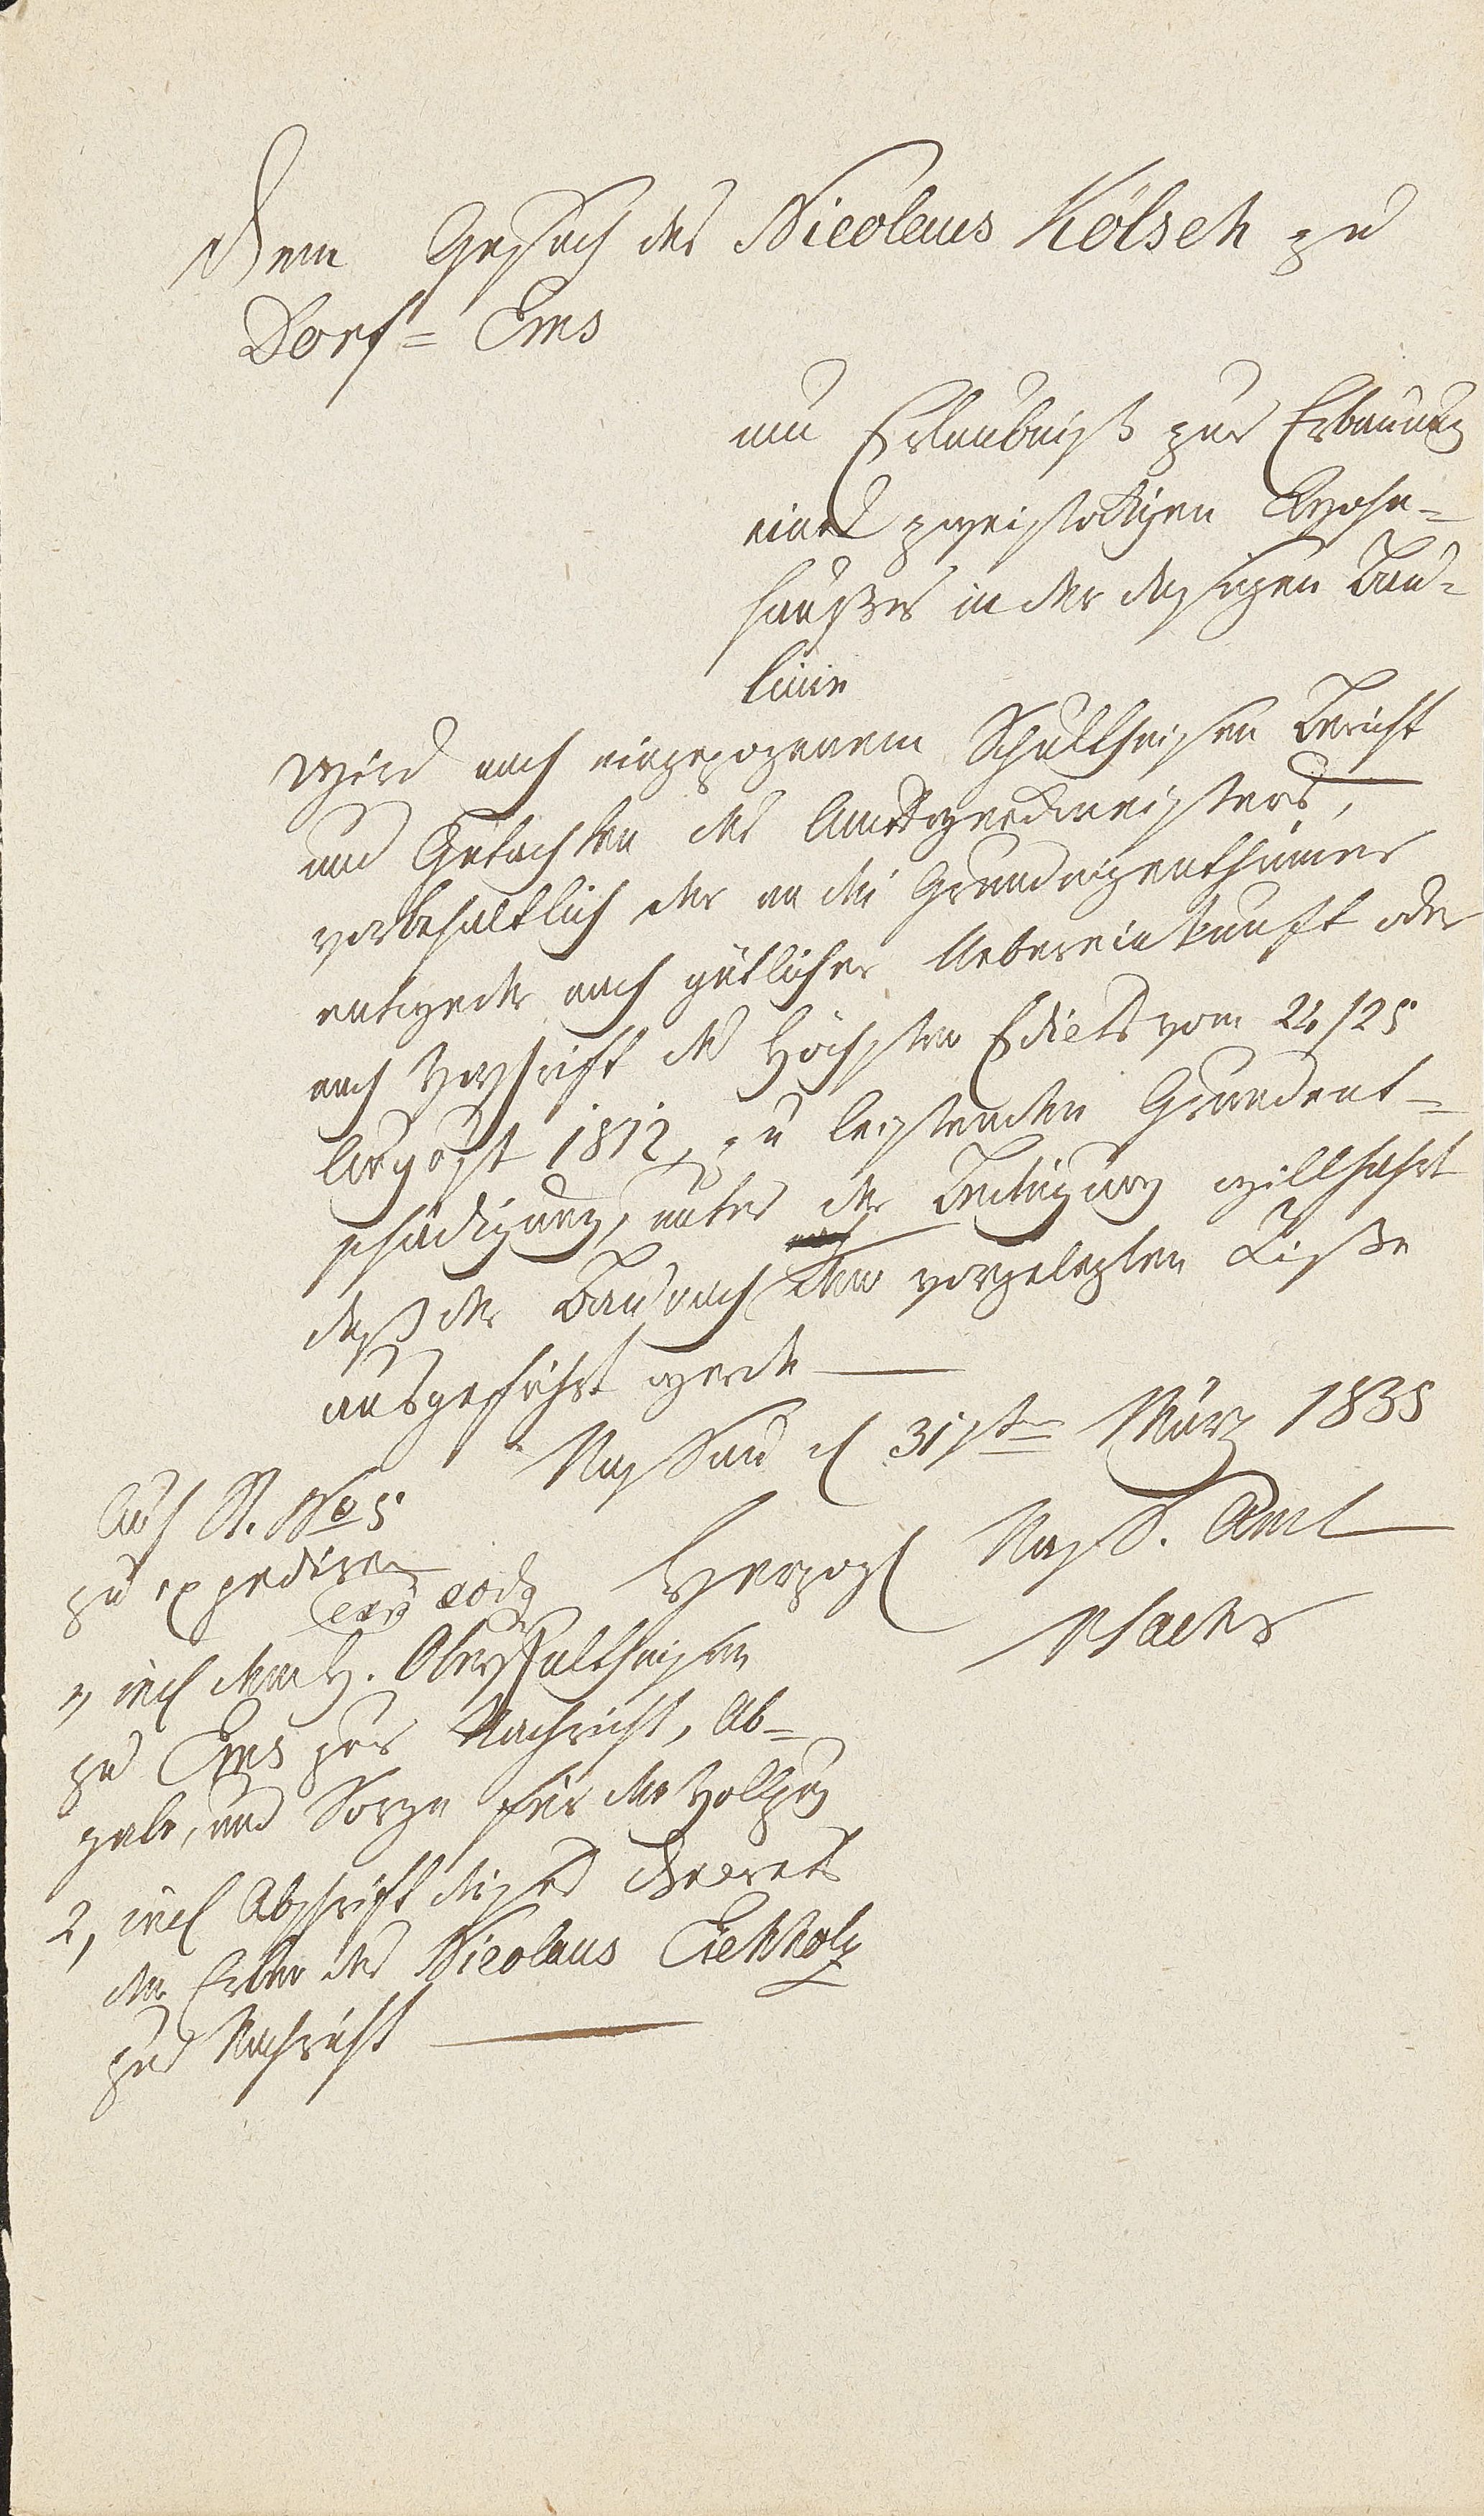 Dem Gesuch des Nicolaus Kölsch zu
Dorf= Ems
um Erlaubniß zur Erbauung
eines zweistökigen Wohn=
haußes in der dasigen Bau=
linie
wird nach eingezogenem Schultheisen Bericht
und Gutachten des Amtswerkmeisters,
vorbehaltlich der an die Grundeigenthümer
entweder nach gütlicher Uebereinkunft oder
nach Vorschrift des Höchsten Edicts vom 24/25
August 1812, zu leistenden Grundent=
schädigung, unter der Bedingung willfahrt
daß der Bau nach dem vorgelegten Riße
ausgeführt werde
Nassau d 31sten März 1835
Herzogl Nass. Amt
Auf St. No 5
zu expediren
eod
1, incl dem H. Oberschultheisen
zu Ems zur Nachricht, Ab=
gabe, und Sorge für den Vollzug
2, incl Abschrift dieses Decrets
den Erben des Nicolaus Eichholz
zur Nachricht